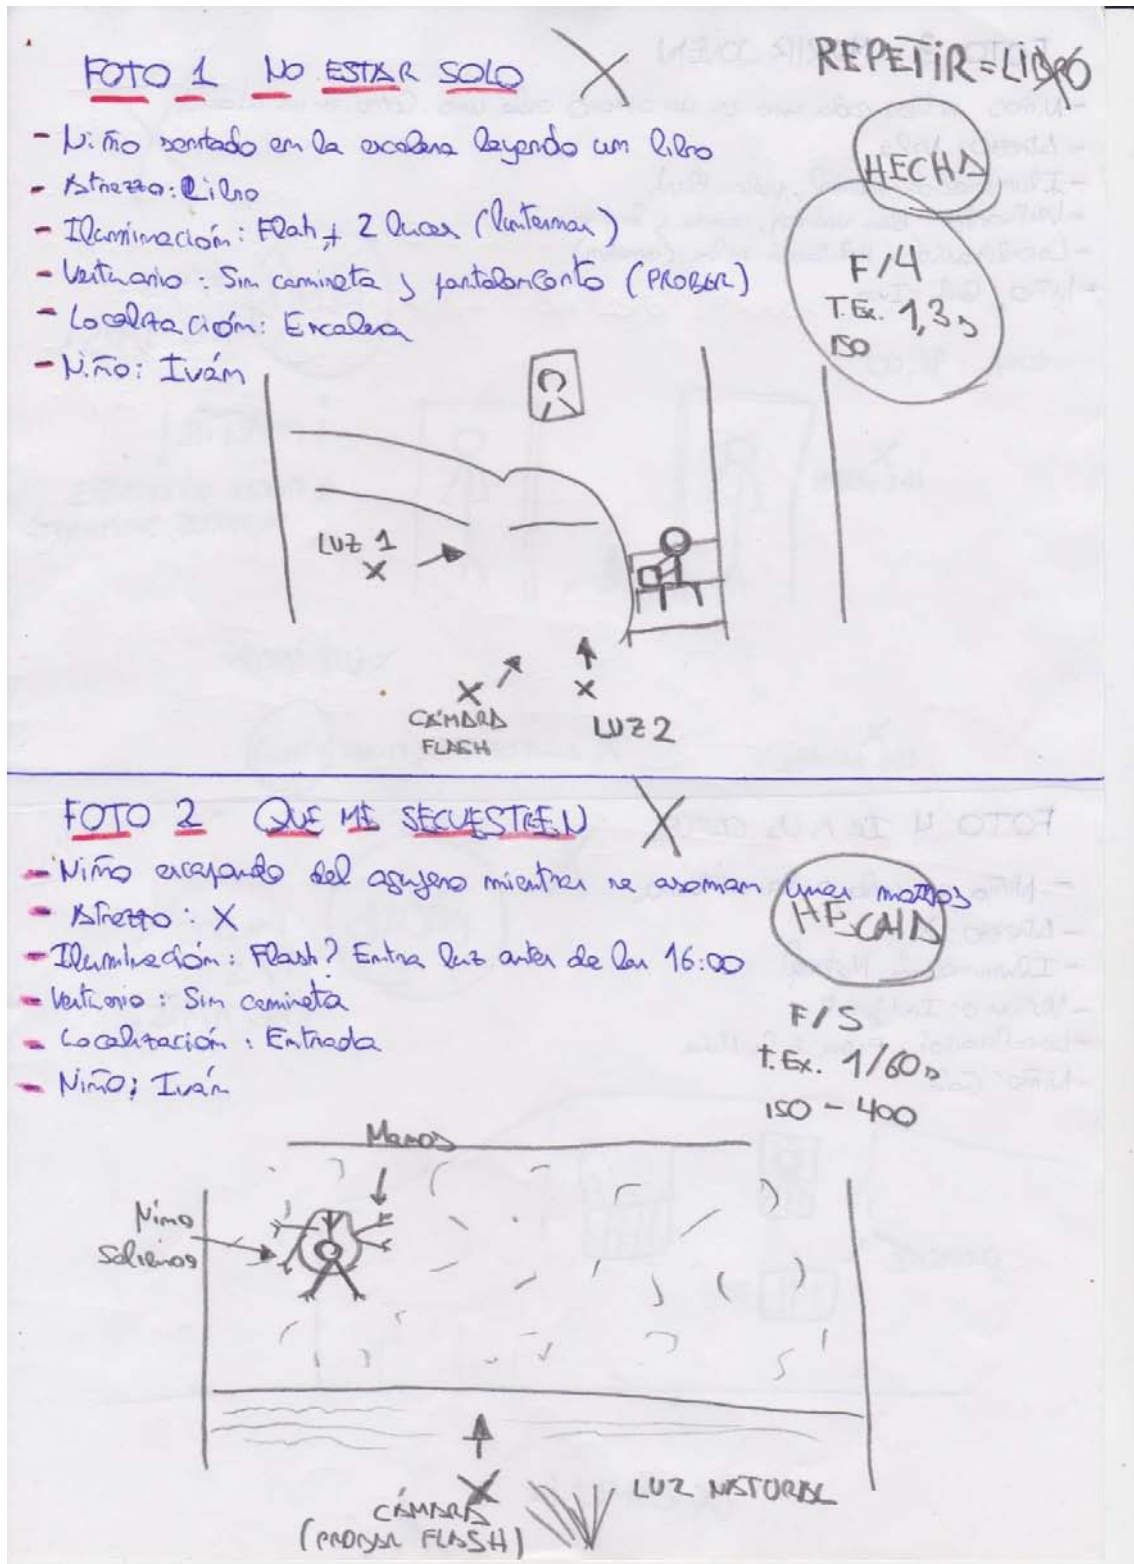 FOTO 1 NO ESTAR SOLO X
REPETIR = LIBRO
- Niño sentado en la escalera leyendo un libro
HECHA
- Atrezzo: Libro
- Iluminación: Flah + 2 luces (linternas)
- Vestuario: Sin camiseta y pantalon corto (PROBAR)
- Localización: Escalera
- Niño: Iván
F/4
T.Ex. 1,3s
ISO
LUZ 1
X
X
CÁMARA
FLASH
X
LUZ 2
FOTO 2 QUE ME SECUESTREN X
- Niño escapando del agujero mientras se asoman unas manos
HECHA
- Atrezzo: X
- Iluminación: Flash? Entra luz antes de las 16:00
- Vestuario: Sin camiseta
- Localización: Entrada
- Niño: Iván
F/5
T.Ex. 1/60s
ISO - 400
Manos
Niño
X
CÁMARA
(PROBAR FLASH)
LUZ NATURAL